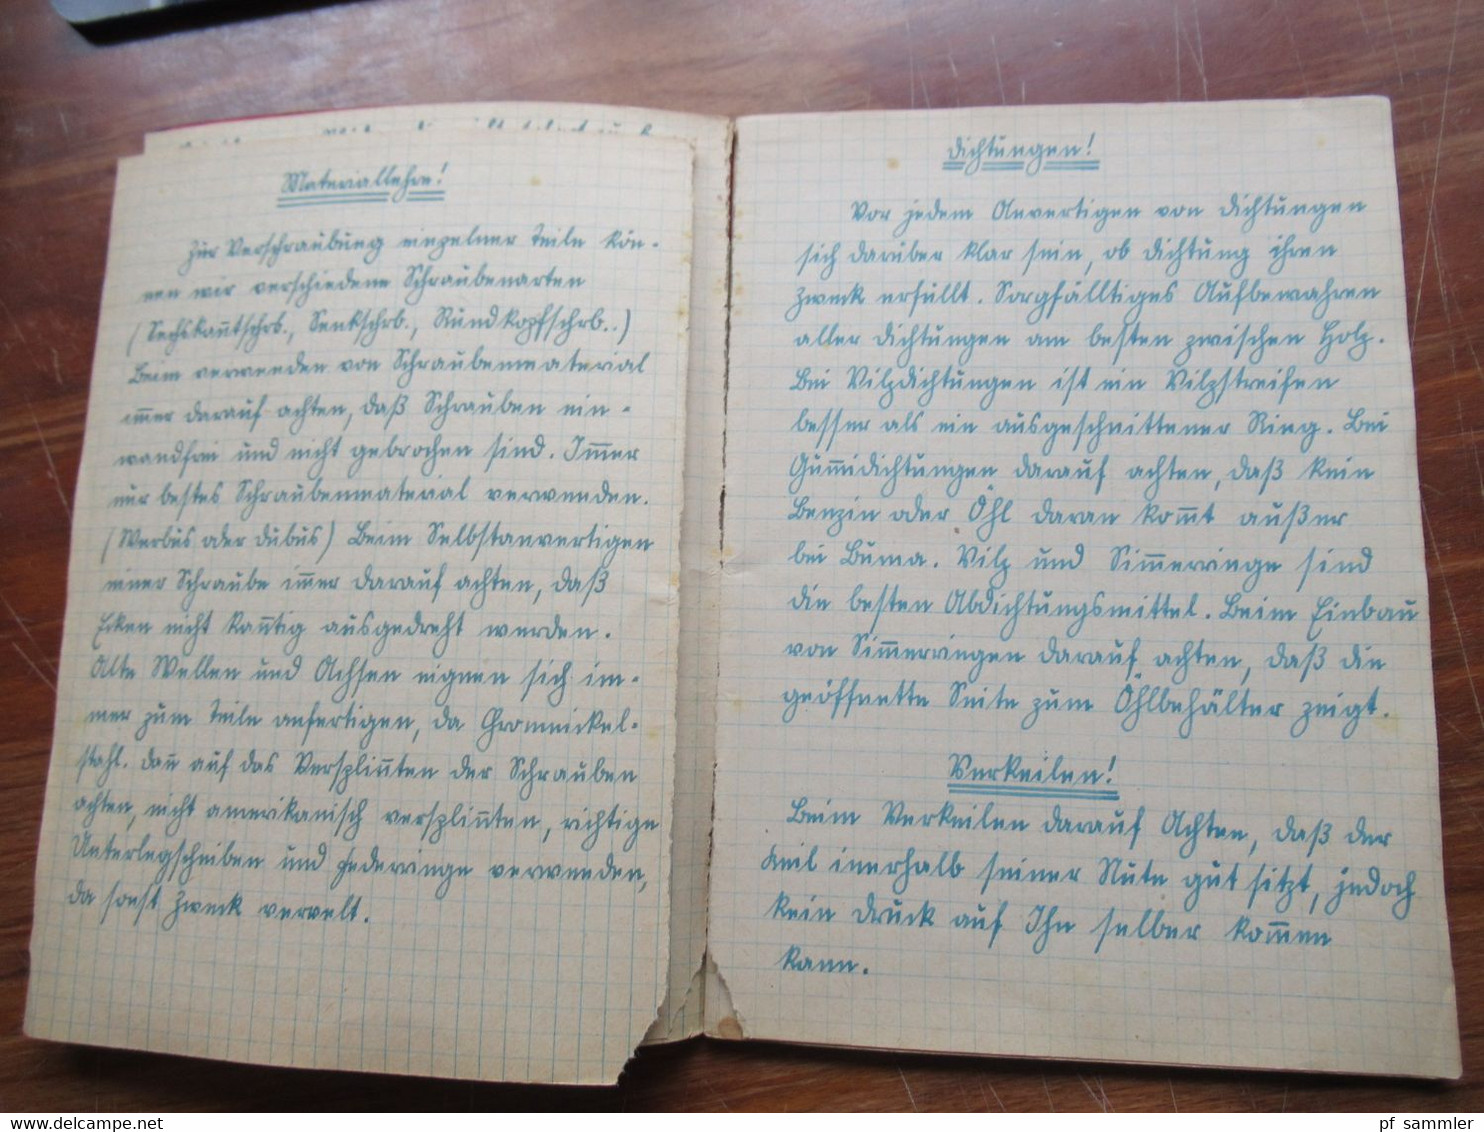 Materiallehre!
Zur Verschraubung einzelner Teile kön-
nen wir verschiedene Schraubenarten
(Sechskan̄tschrb., Senkschrb., Rundkopfschrb..)
Beim verwenden von Schraubenmaterial
im̄er darauf achten, daß Schrauben ein-
wandfrei und nicht gebrochen sind. Im̄er
nur bestes Schraubenmaterial verwenden.
(Verbus oder dubus) Beim Selbstanvertigen
einer Schraube im̄er darauf achten, daß
Ecken nicht kan̄tig ausgedreht werden.
Alte Wellen und Achsen eignen sich im-
mer zum Teile anfertigen, da Chromnickel-
stahl. Dan̄ auf das Versplin̄ten der Schrauben
achten, nicht amerikanisch versplin̄ten, richtige
Unterlegscheiben und Federringe verwenden,
da sonst Zweck vervelt.
Dichtungen!
Vor jedem Anvertigen von Dichtungen
sich darüber klar sein, ob Dichtung ihren
Zweck erfüllt. Sorgfälltiges Aufbewahren
aller Dichtungen am besten zwischen Holz.
Bei Vilzdichtungen ist ein Vilzstreifen
besser als ein ausgeschnittener Ring. Bei
Gum̄idichtungen darauf achten, daß kein
Benzin oder Öhl daran kom̄t außer
bei Buma. Vilz und Sim̄erringe sind
die besten Abdichtungsmittel. Beim Einbau
von Sim̄erringen darauf achten, daß die
geöffnette Seite zum Öhlbehälter zeigt.
Verkeilen!
Beim Verkeilen darauf Achten, daß der
Keil inerhalb seiner Nute gut sitzt, jedoch
kein Druck auf Ihn selber kom̄en
kann.
pf_sammler